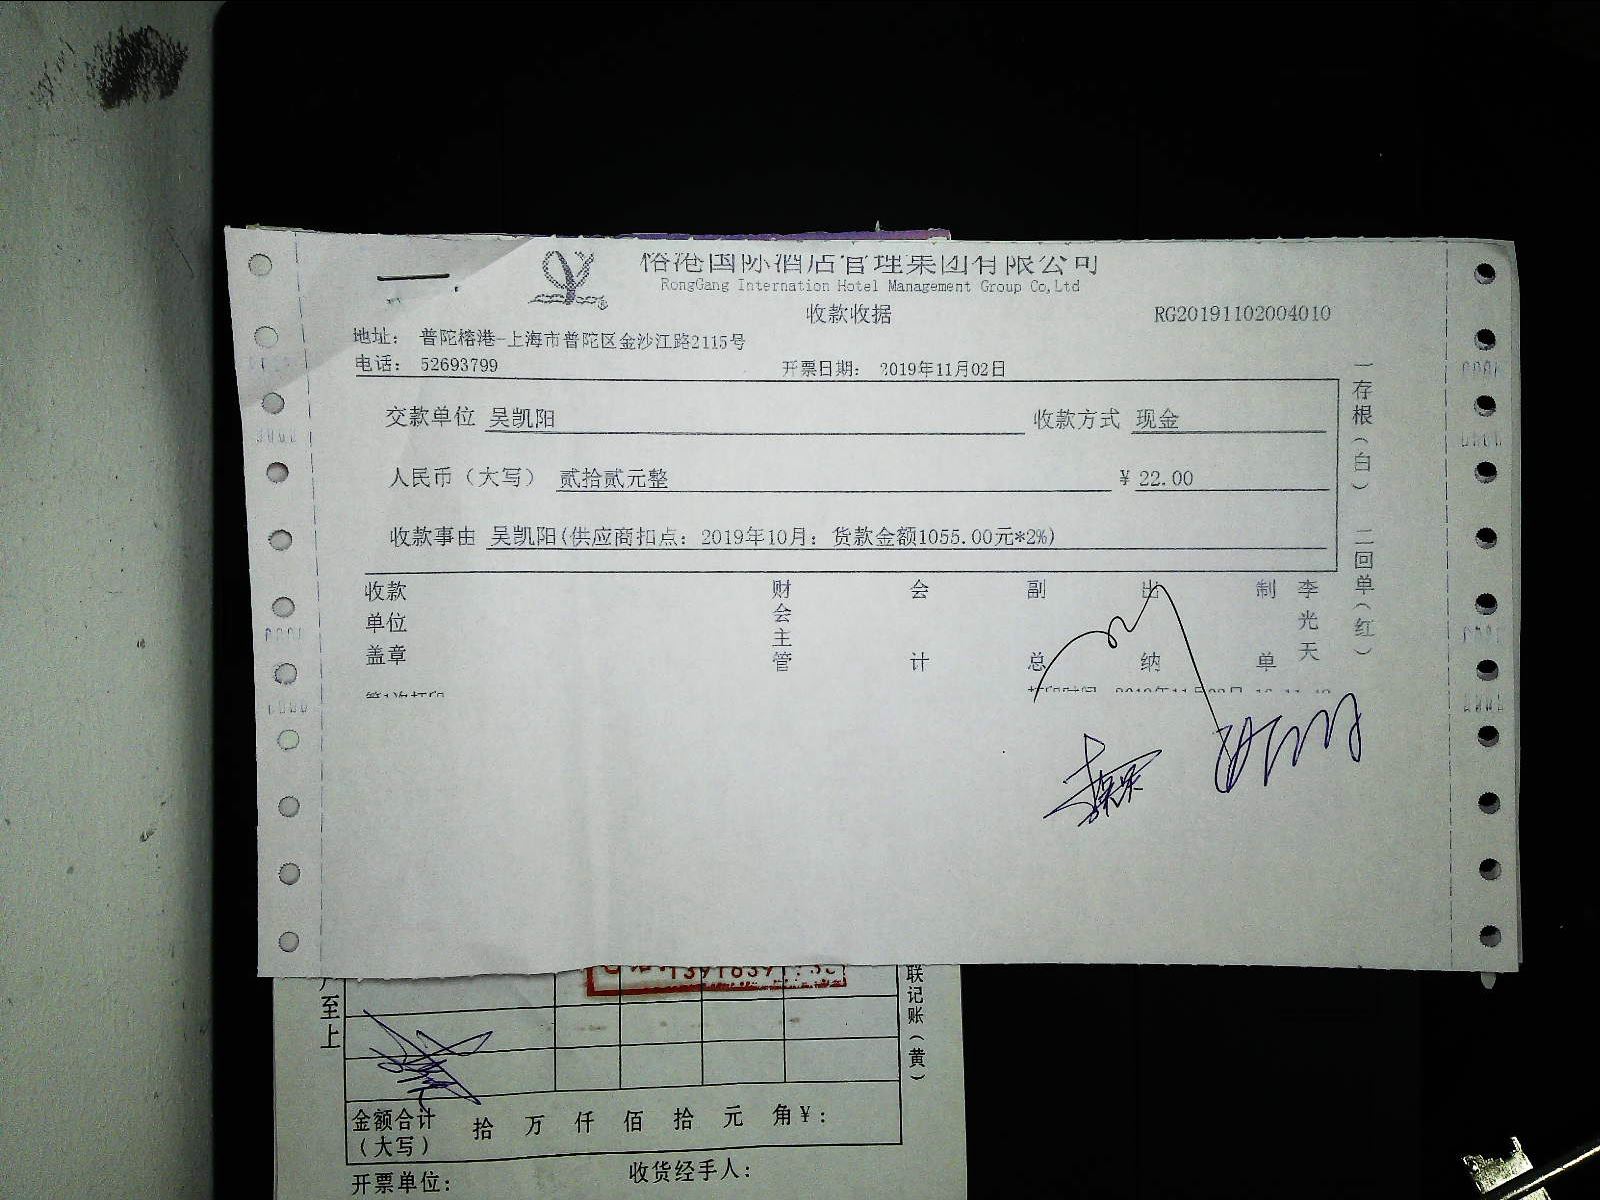 榕港国际酒店管理集团有限公司
RongGang Internation Hotel Management Group Co,Ltd
收款收据
RG20191102004010
地址： 普陀榕港-上海市普陀区金沙江路2115号
电话： 52693799
开票日期： 2019年11月02日
交款单位 吴凯阳 收款方式 现金
人民币（大写） 贰拾贰元整 ¥ 22.00
收款事由 吴凯阳(供应商扣点：2019年10月：货款金额1055.00元*2%)
一存根（白） 二回单（红）
收款单位盖章 财会主管 会计 副总 出纳 制单 李光天
第1次打印
户至上
联记账（黄）
金额合计（大写） 拾 万 仟 佰 拾 元 角 ¥：
开票单位： 收货经手人：